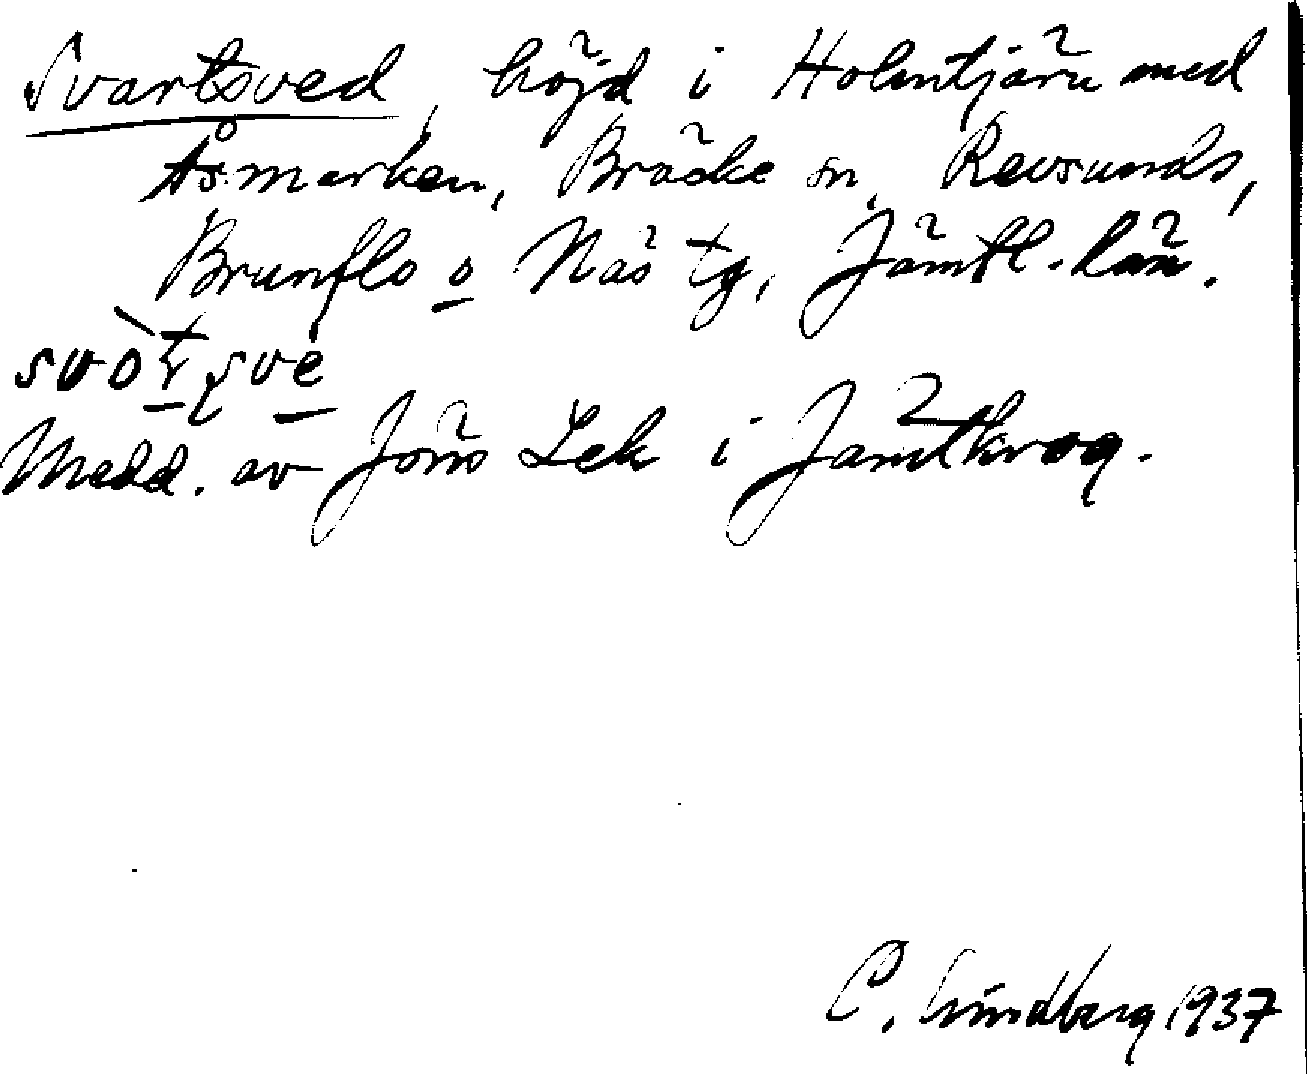 Svartsved, höjd i Holmtjärn med
Åsmarken, Bräcke sn, Revsunds,
Brunflo o Näs tg, Jämtl. län.
Medd. av Jöns Lek i Jämtkrog.
C. Lindberg 1937